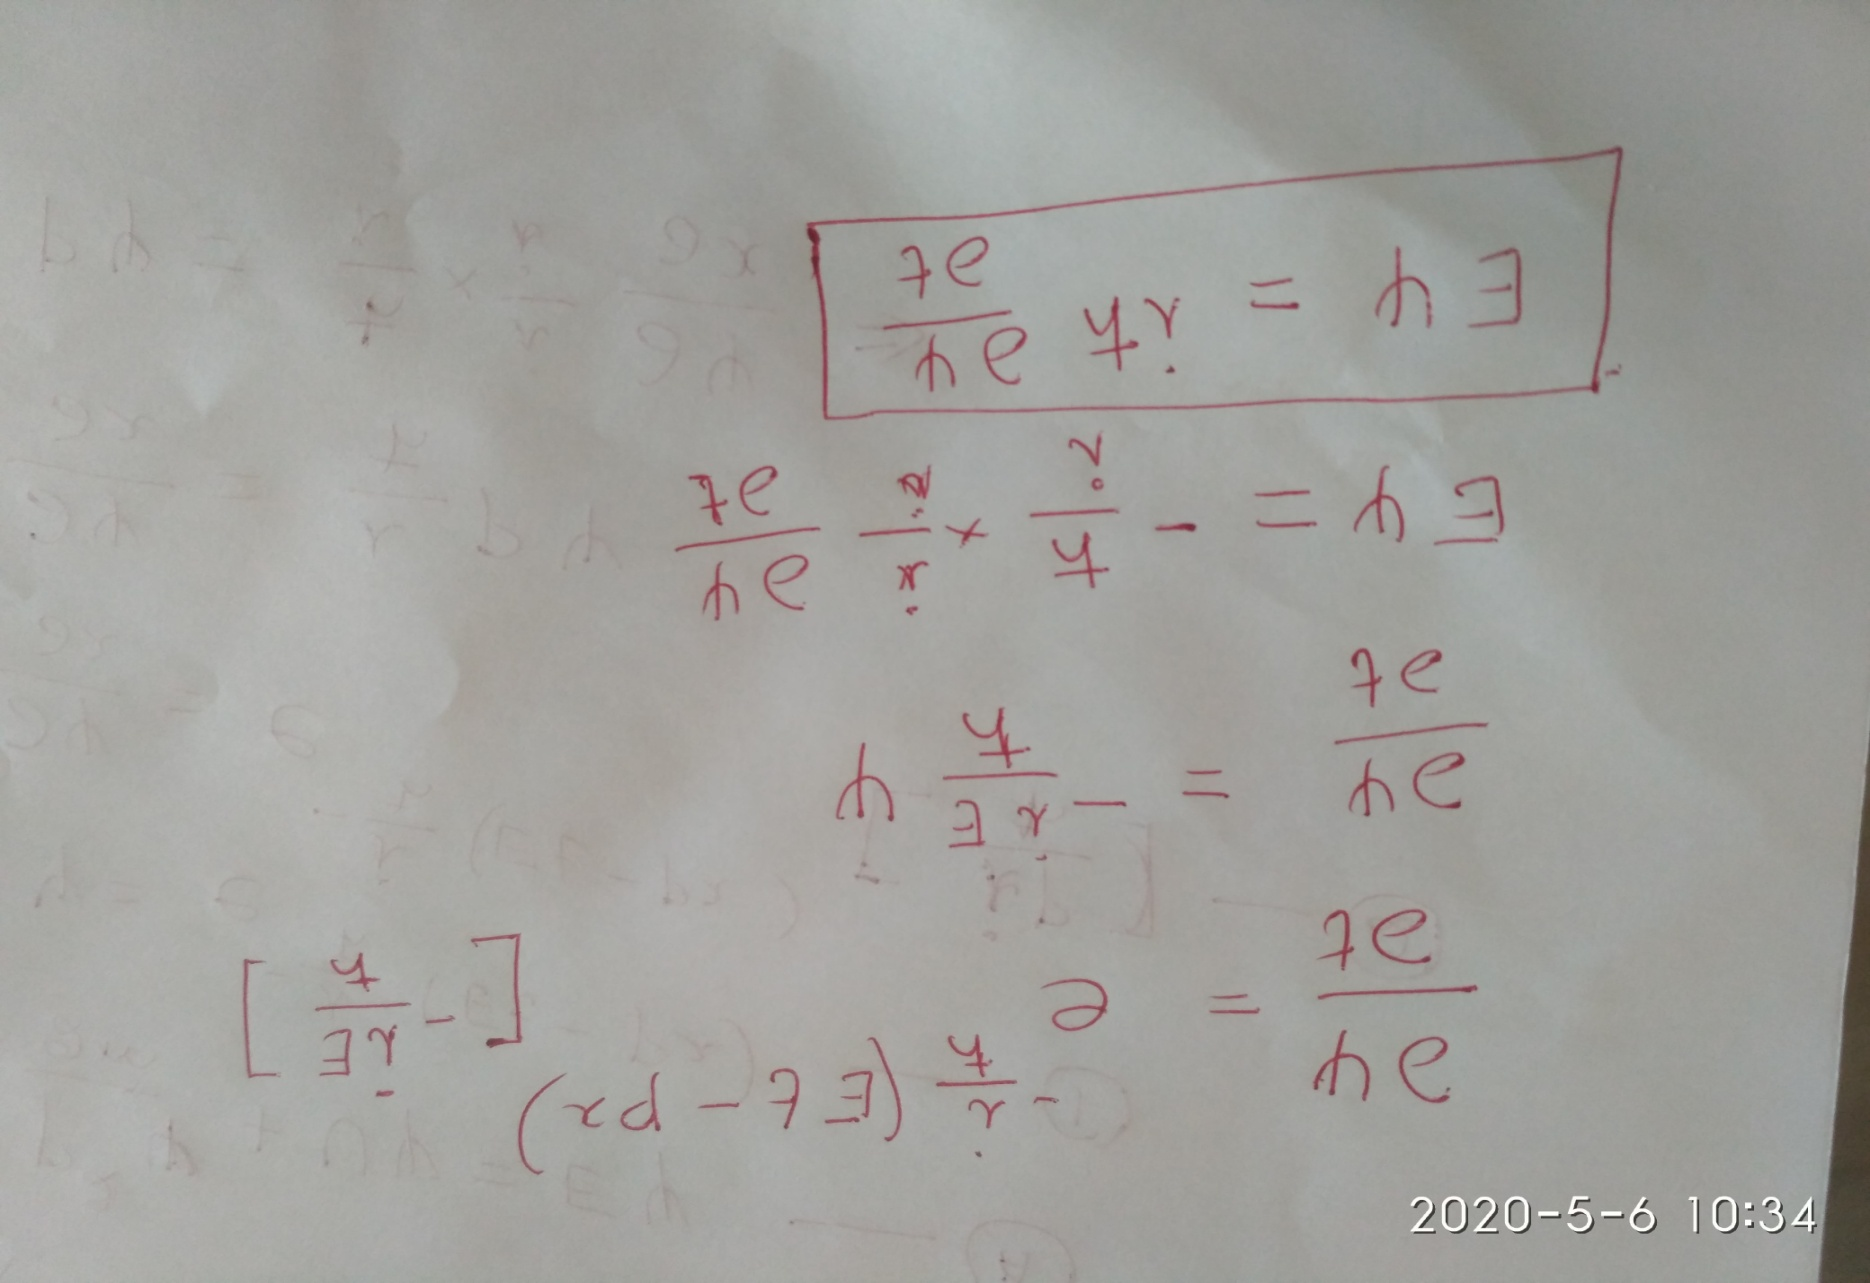 ∂ψ/∂t = e^{-i/ħ (Et - px)} [-iE/ħ]
∂ψ/∂t = -iE/ħ ψ
Eψ = -ħ/i × i/i ∂ψ/∂t
Eψ = iħ ∂ψ/∂t
2020-5-6 10:34